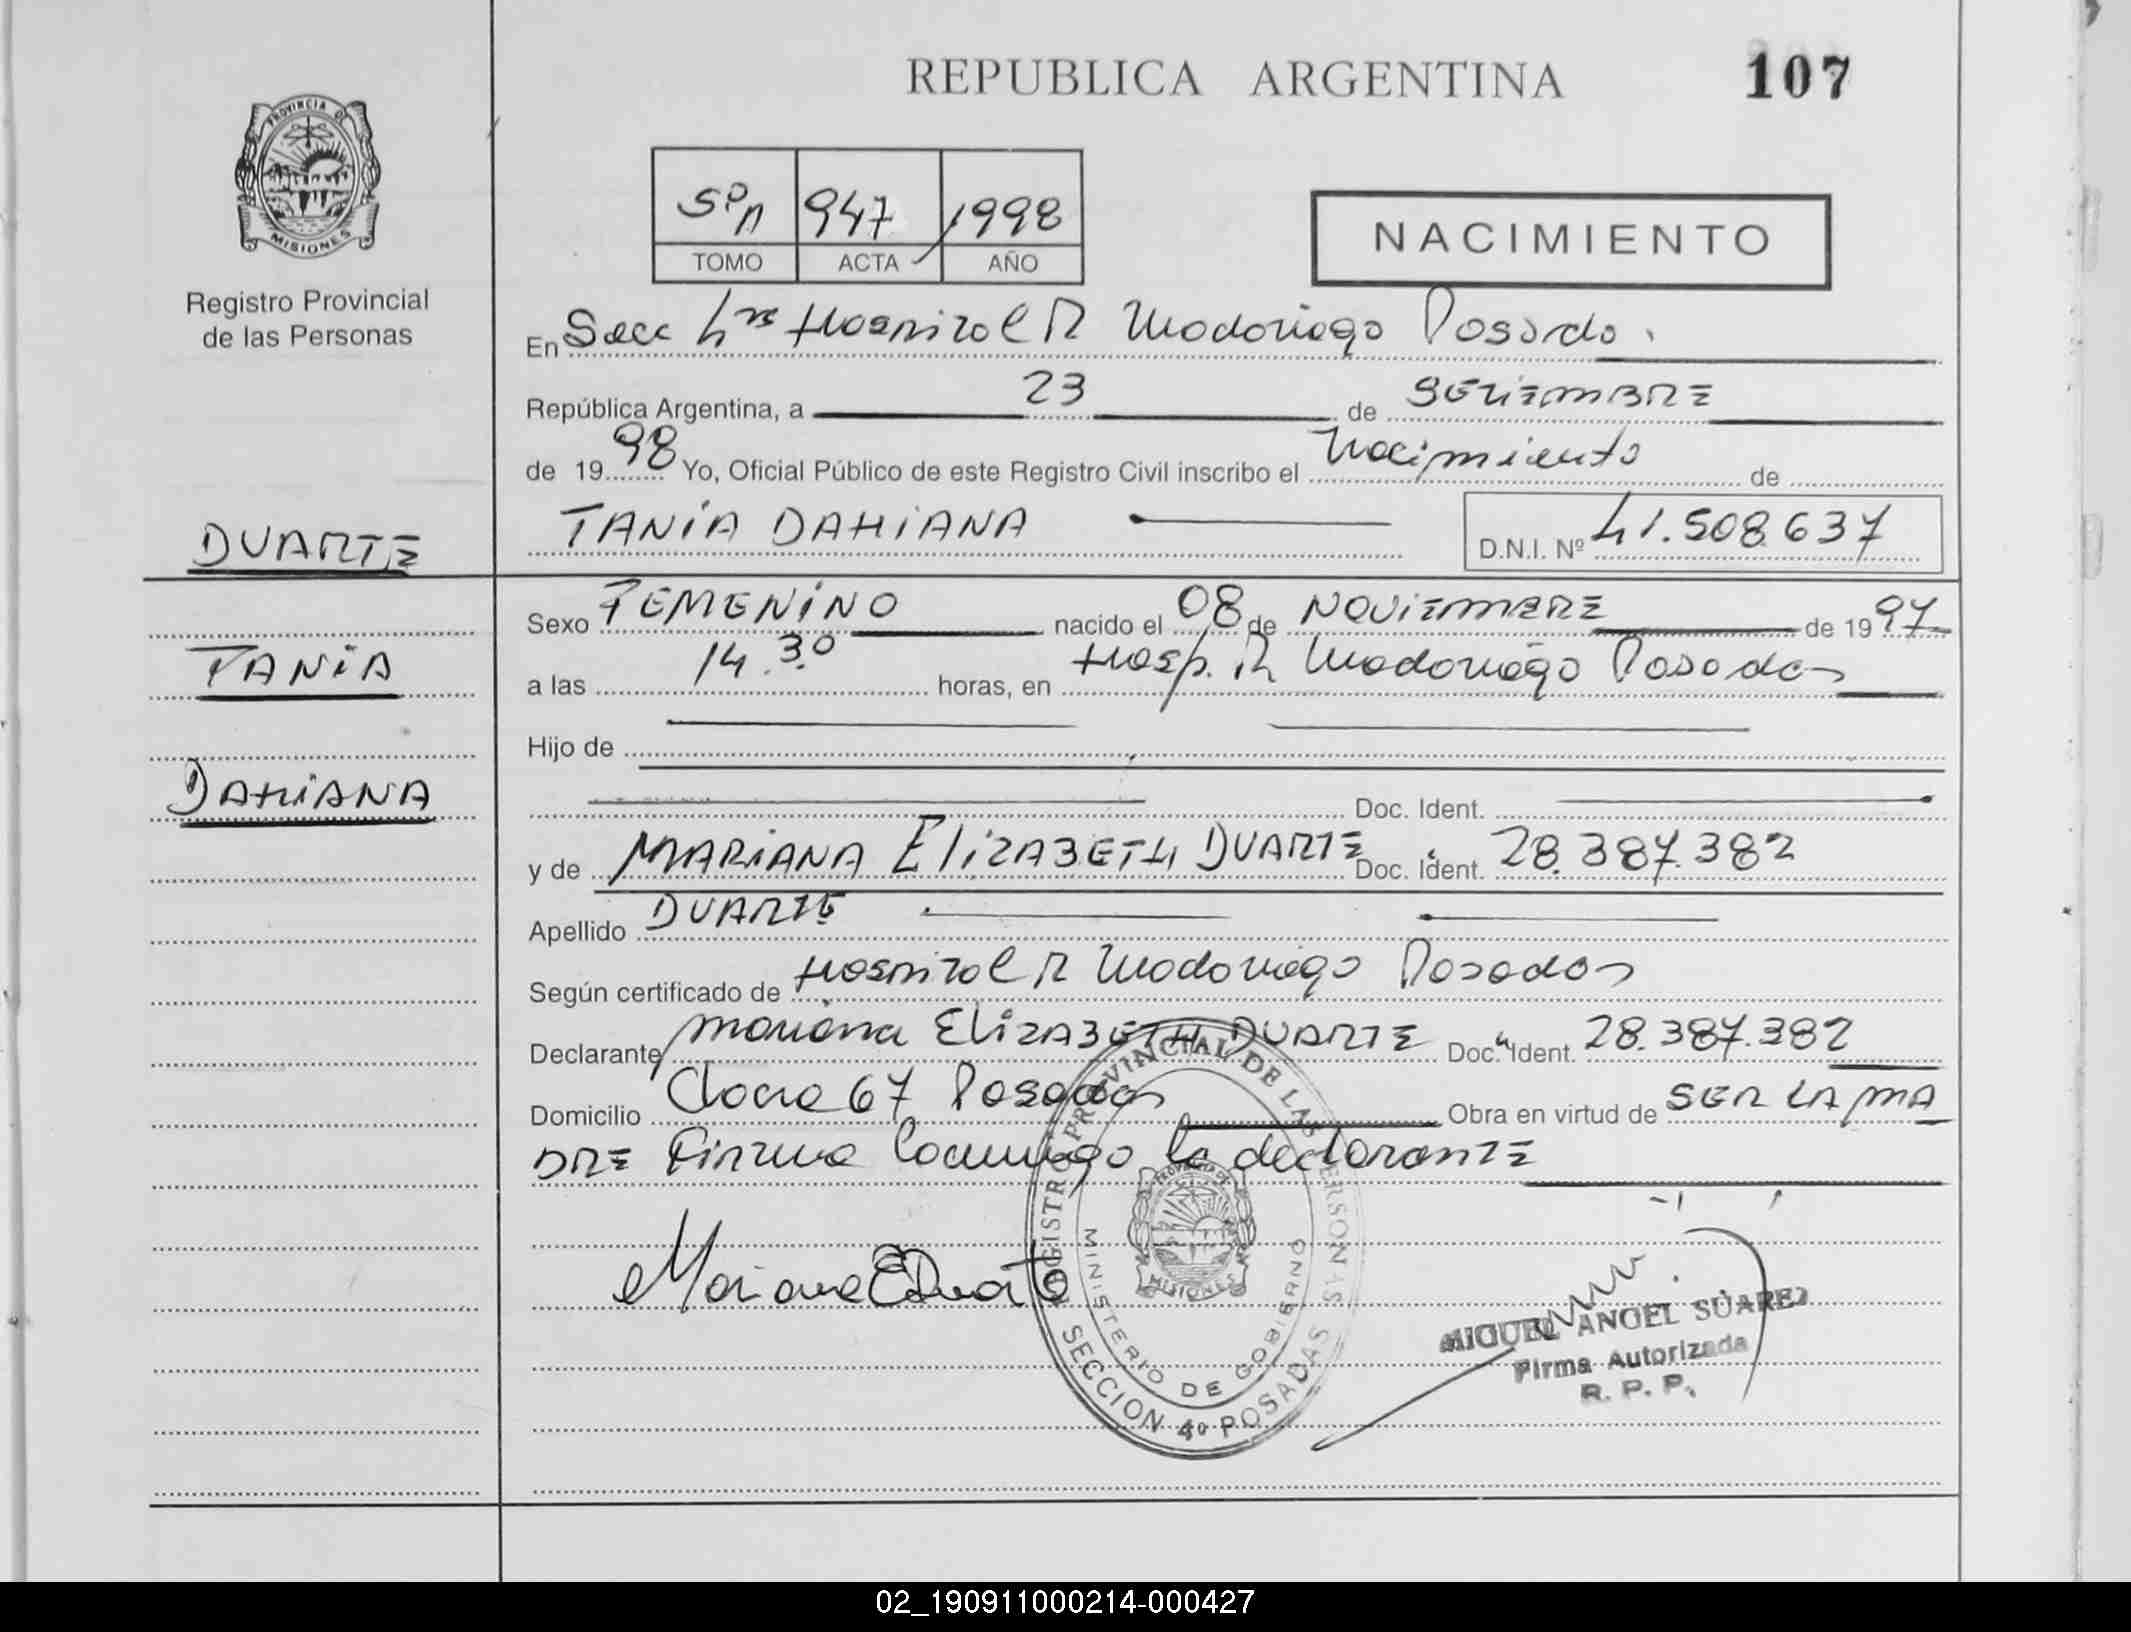 REPUBLICA ARGENTINA
107
PROVINCIA DE
MISIONES
Registro Provincial
de las Personas
947 1998
TOMO ACTA AÑO
NACIMIENTO
En Secc Hospital R Madariaga Posadas
República Argentina, a 23 de SETIEMBRE
de 1998 Yo, Oficial Público de este Registro Civil inscribo el Nacimiento de
DUARTE
TANIA DAHIANA
D.N.I. Nº 41.508.637
Sexo FEMENINO nacido el 08 de NOVIEMBRE de 1997
TANIA
a las 14.30 horas, en Hosp. R Madariaga Posadas
Hijo de
DAHIANA
Doc. Ident.
y de MARIANA ELIZABETH DUARTE Doc. Ident. 28.387.382
Apellido DUARTE
Según certificado de Hospital R Madariaga Posadas
Declarante Mariana ELIZABETH DUARTE Doc. Ident. 28.387.382
Domicilio Chacra 67 Posadas Obra en virtud de SER LA MA
DRE Firma conmigo la declarante
Mariana E Duarte
REGISTRO PROVINCIAL DE LAS PERSONAS
MINISTERIO DE GOBIERNO
PROVINCIA DE
MISIONES
SECCION 4º POSADAS
MIGUEL ANGEL SUAREZ
Firma Autorizada
R. P. P.
02_190911000214-000427